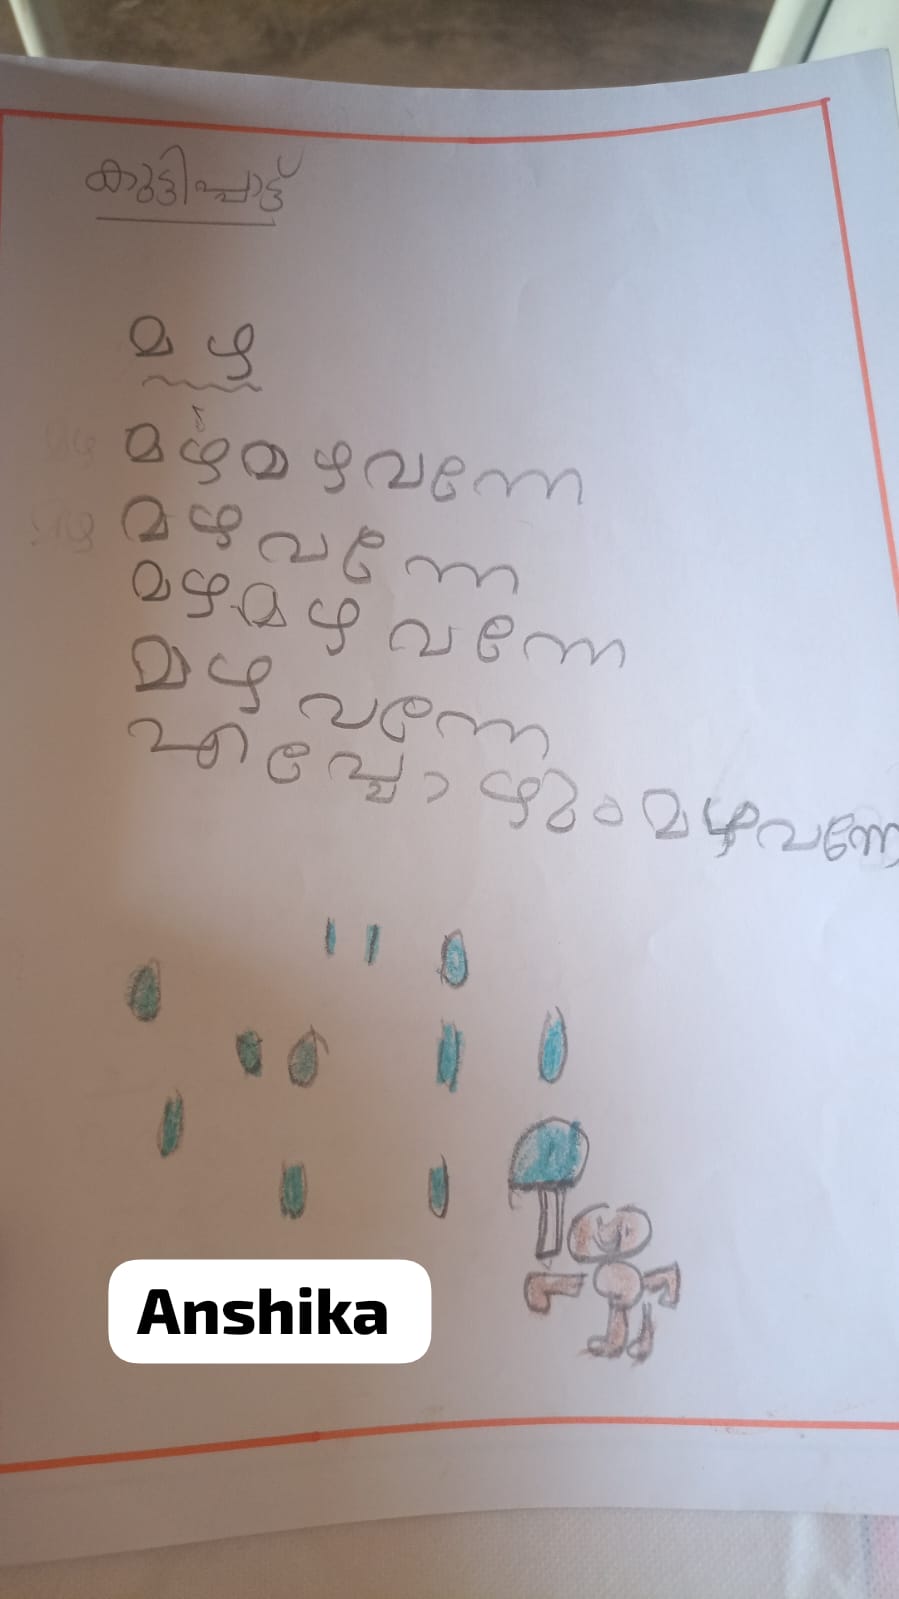 കുട്ടിപ്പാട്ട്
മഴ
മഴമഴവന്നേ
മഴ വന്നേ
മഴമഴ വന്നേ
മഴ വന്നേ
എപ്പോഴും മഴവന്നേ
Anshika